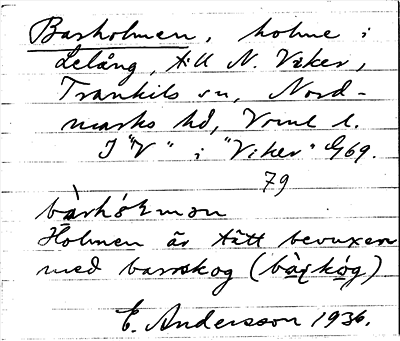 Barholmen, holme i
Lelång, till N. Viker,
Trankils sn, Nord-
marks hd, Vrml l.
I "V" i "Viker" G69.
79
bàrhólmən
Holmen är tätt bevuxen
med barrskog (bàrskóg)
E. Andersson 1936.